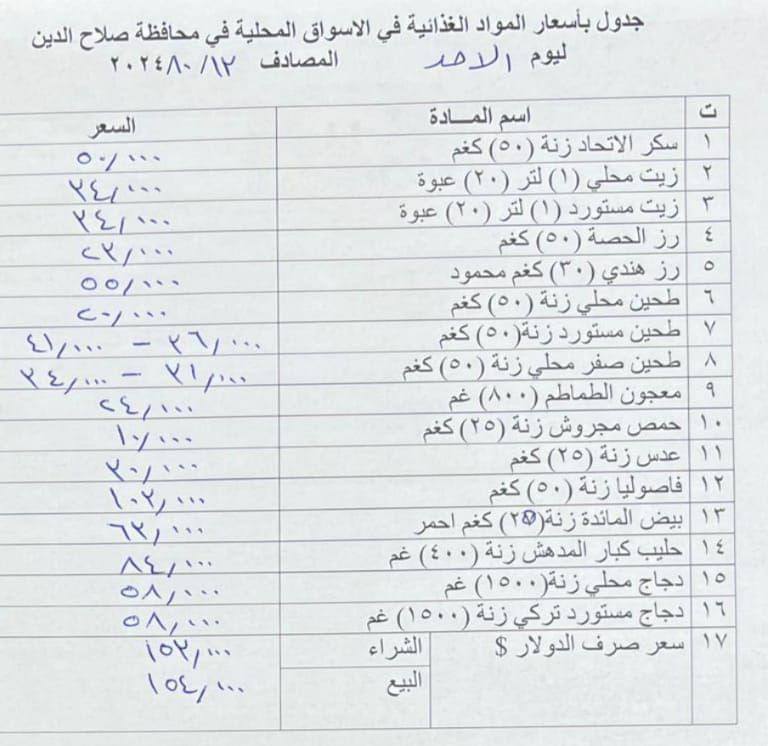 جدول بأسعار المواد الغذائية في الاسواق المحلية في محافظة صلاح الدين
ليوم الاحد المصادف ١٣/١٠/٢٠٢٤
ت اسم المـــادة السعر
١ سكر الاتحاد زنة (٥٠) كغم ٥٠,٠٠٠
٢ زيت محلي (١) لتر (٢٠) عبوة ٣٤,٠٠٠
٣ زيت مستورد (١) لتر (٢٠) عبوة ٣٤,٠٠٠
٤ رز الحصة (٥٠) كغم ٢٣,٠٠٠
٥ رز هندي (٣٠) كغم محمود ٥٥,٠٠٠
٦ طحين محلي زنة (٥٠) كغم ٢٠,٠٠٠
٧ طحين مستورد زنة(٥٠) كغم ٣٦,٠٠٠ – ٤١,٠٠٠
٨ طحين صفر محلي زنة (٥٠) كغم ٣١,٠٠٠ – ٣٤,٠٠٠
٩ معجون الطماطم (٨٠٠) غم ٢٤,٠٠٠
١٠ حمص مجروش زنة (٢٥) كغم ١٠,٠٠٠
١١ عدس زنة (٢٥) كغم ٣٠,٠٠٠
١٢ فاصوليا زنة (٥٠) كغم ١٠٢,٠٠٠
١٣ بيض المائدة زنة( ) كغم احمر ٦٢,٠٠٠
١٤ حليب كبار المدهش زنة (٤٠٠) غم ٨٤,٠٠٠
١٥ دجاج محلي زنة(١٥٠٠) غم ٥٨,٠٠٠
١٦ دجاج مستورد تركي زنة (١٥٠٠) غم ٥٨,٠٠٠
١٧ سعر صرف الدولار $ الشراء ١٥٢,٠٠٠
البيع ١٥٤,٠٠٠